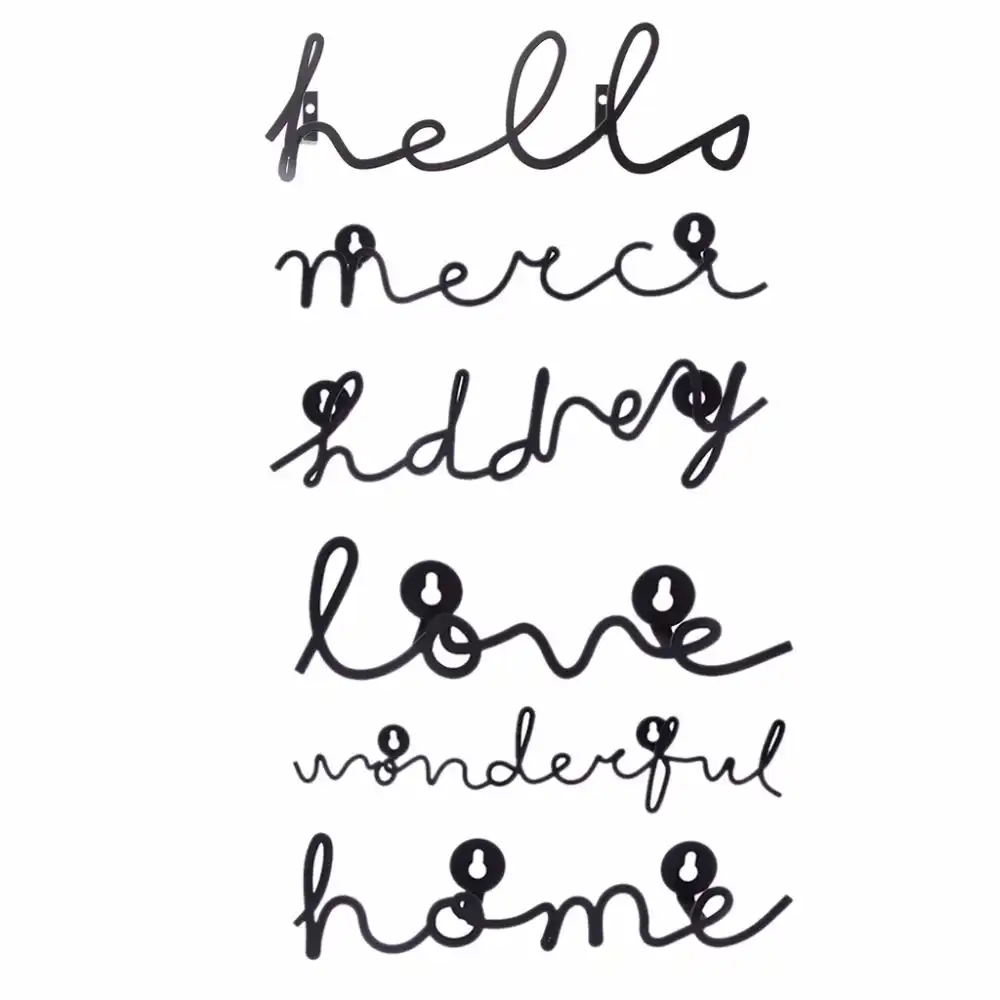 hello
merci
love
wonderful
home